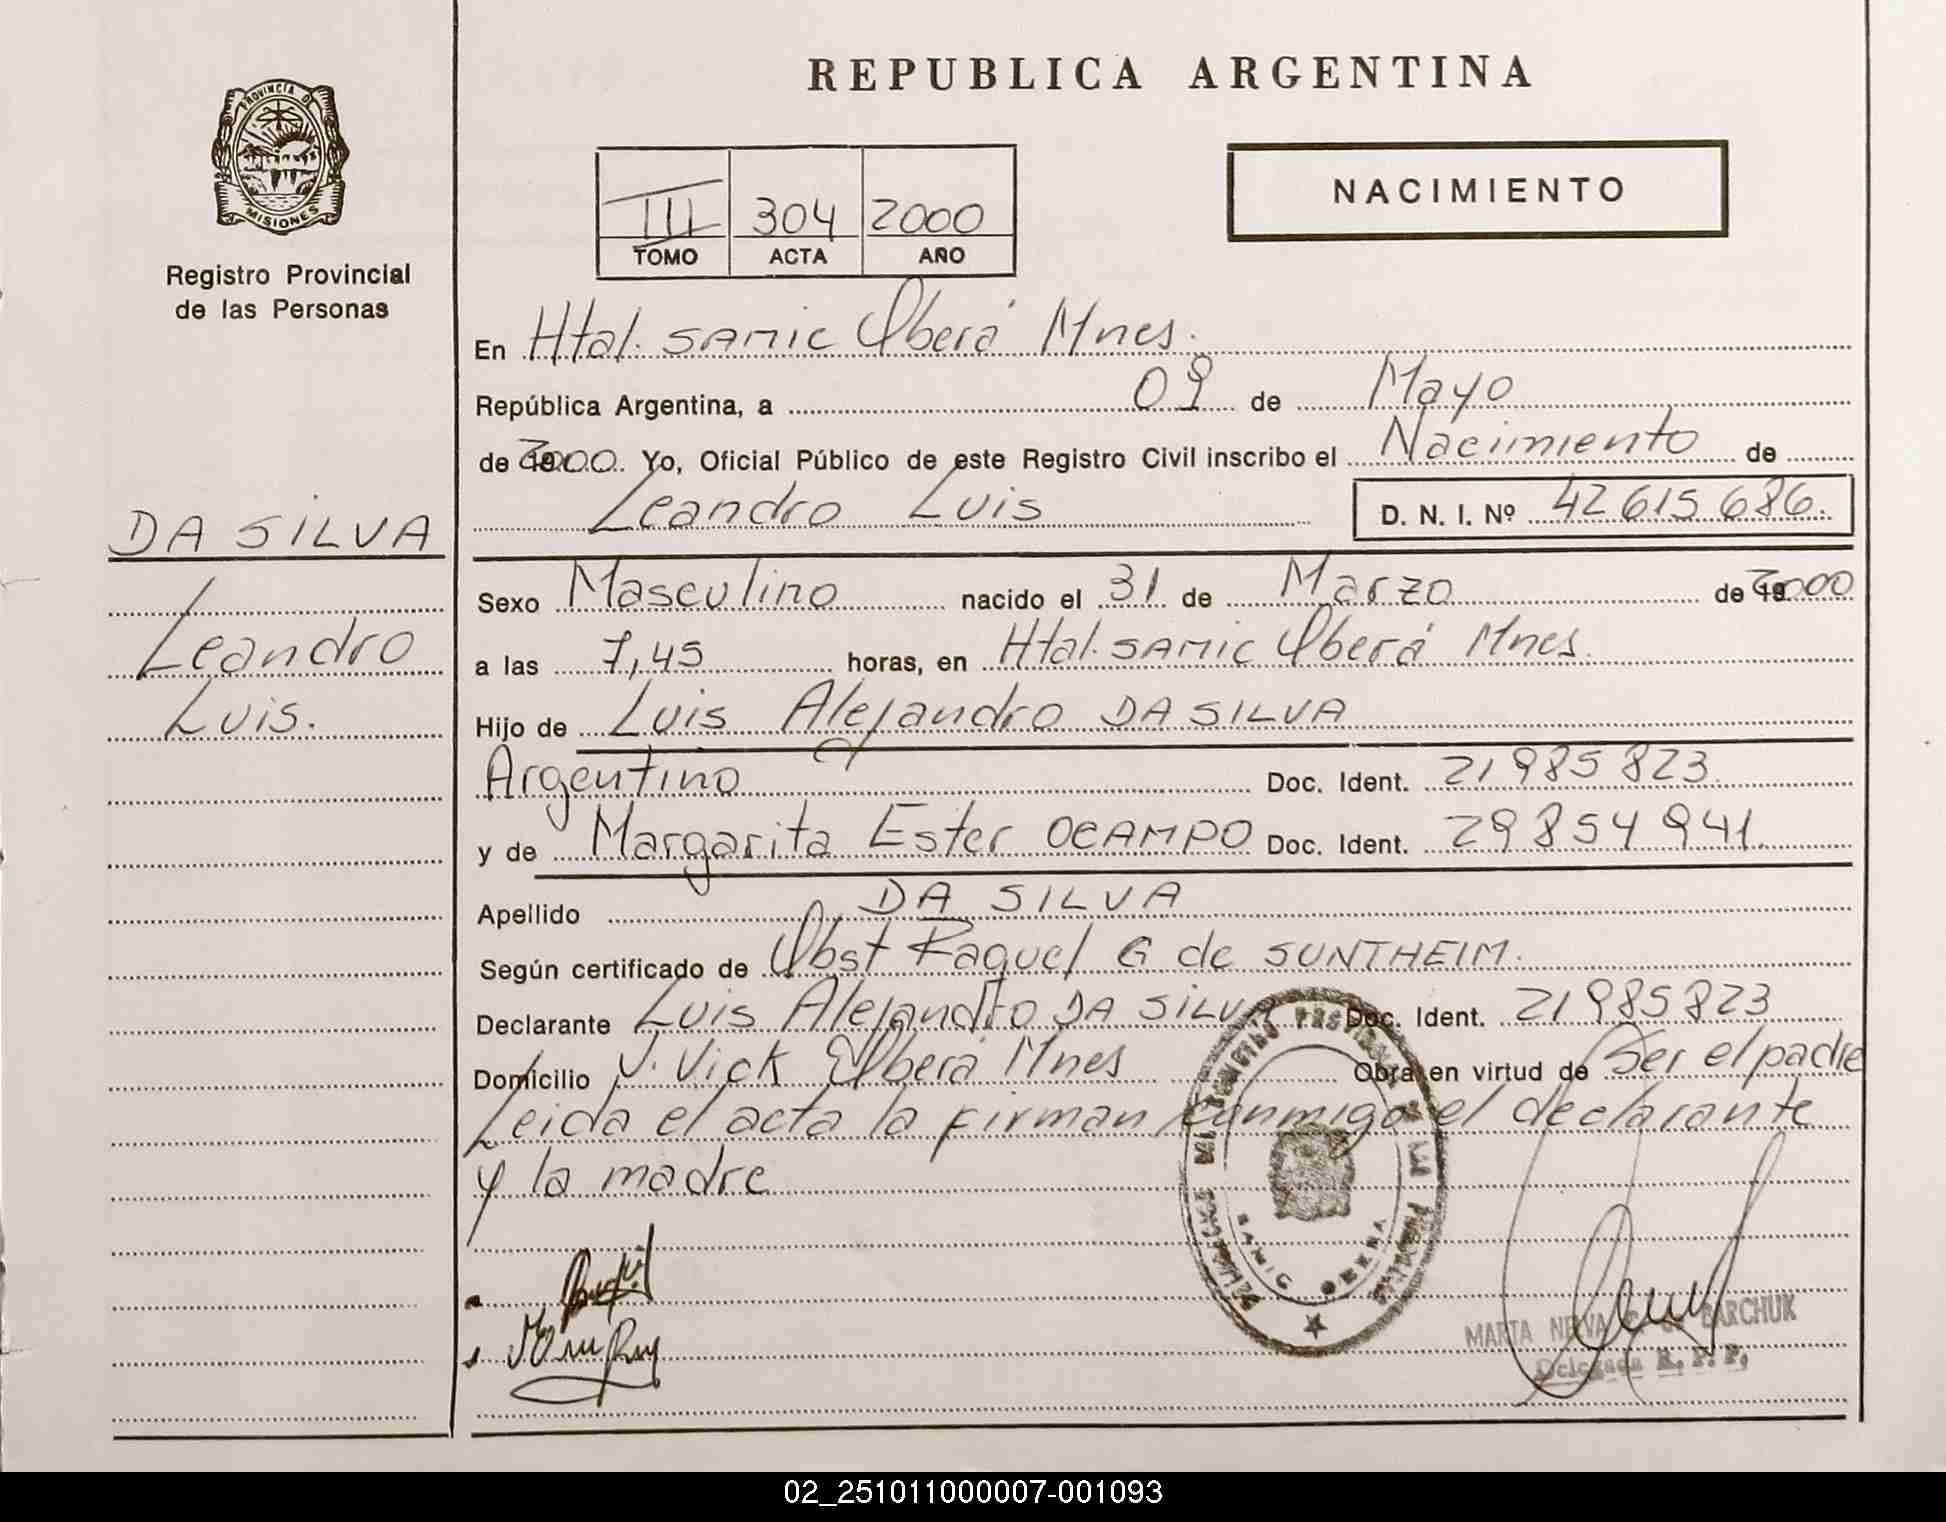 REPUBLICA ARGENTINA
PROVINCIA DE
MISIONES
Registro Provincial
de las Personas
III 304 2000
TOMO ACTA AÑO
NACIMIENTO
En Htal. SAMIC Oberá Mnes.
República Argentina, a 09 de Mayo
de 2000 Yo, Oficial Público de este Registro Civil inscribo el Nacimiento de
Leandro Luis D. N. I. Nº 42615686.
DA SILVA
Leandro
Luis.
Sexo Masculino nacido el 31 de Marzo de 2000
a las 7,45 horas, en Htal. SAMIC Oberá Mnes.
Hijo de Luis Alejandro DA SILVA
Argentino Doc. Ident. 21985823
y de Margarita Ester OCAMPO Doc. Ident. 29854941.
Apellido DA SILVA
Según certificado de Obst Raquel G de SUNTHEIM.
Declarante Luis Alejandro DA SILVA Doc. Ident. 21985823
Domicilio V. Vick Oberá Mnes Obra en virtud de Ser el padre
Leida el acta la firman conmigo el declarante
y la madre
SAMIC OBERA
MARTA BARCHUK
Delegada R. P. P.
02_251011000007-001093